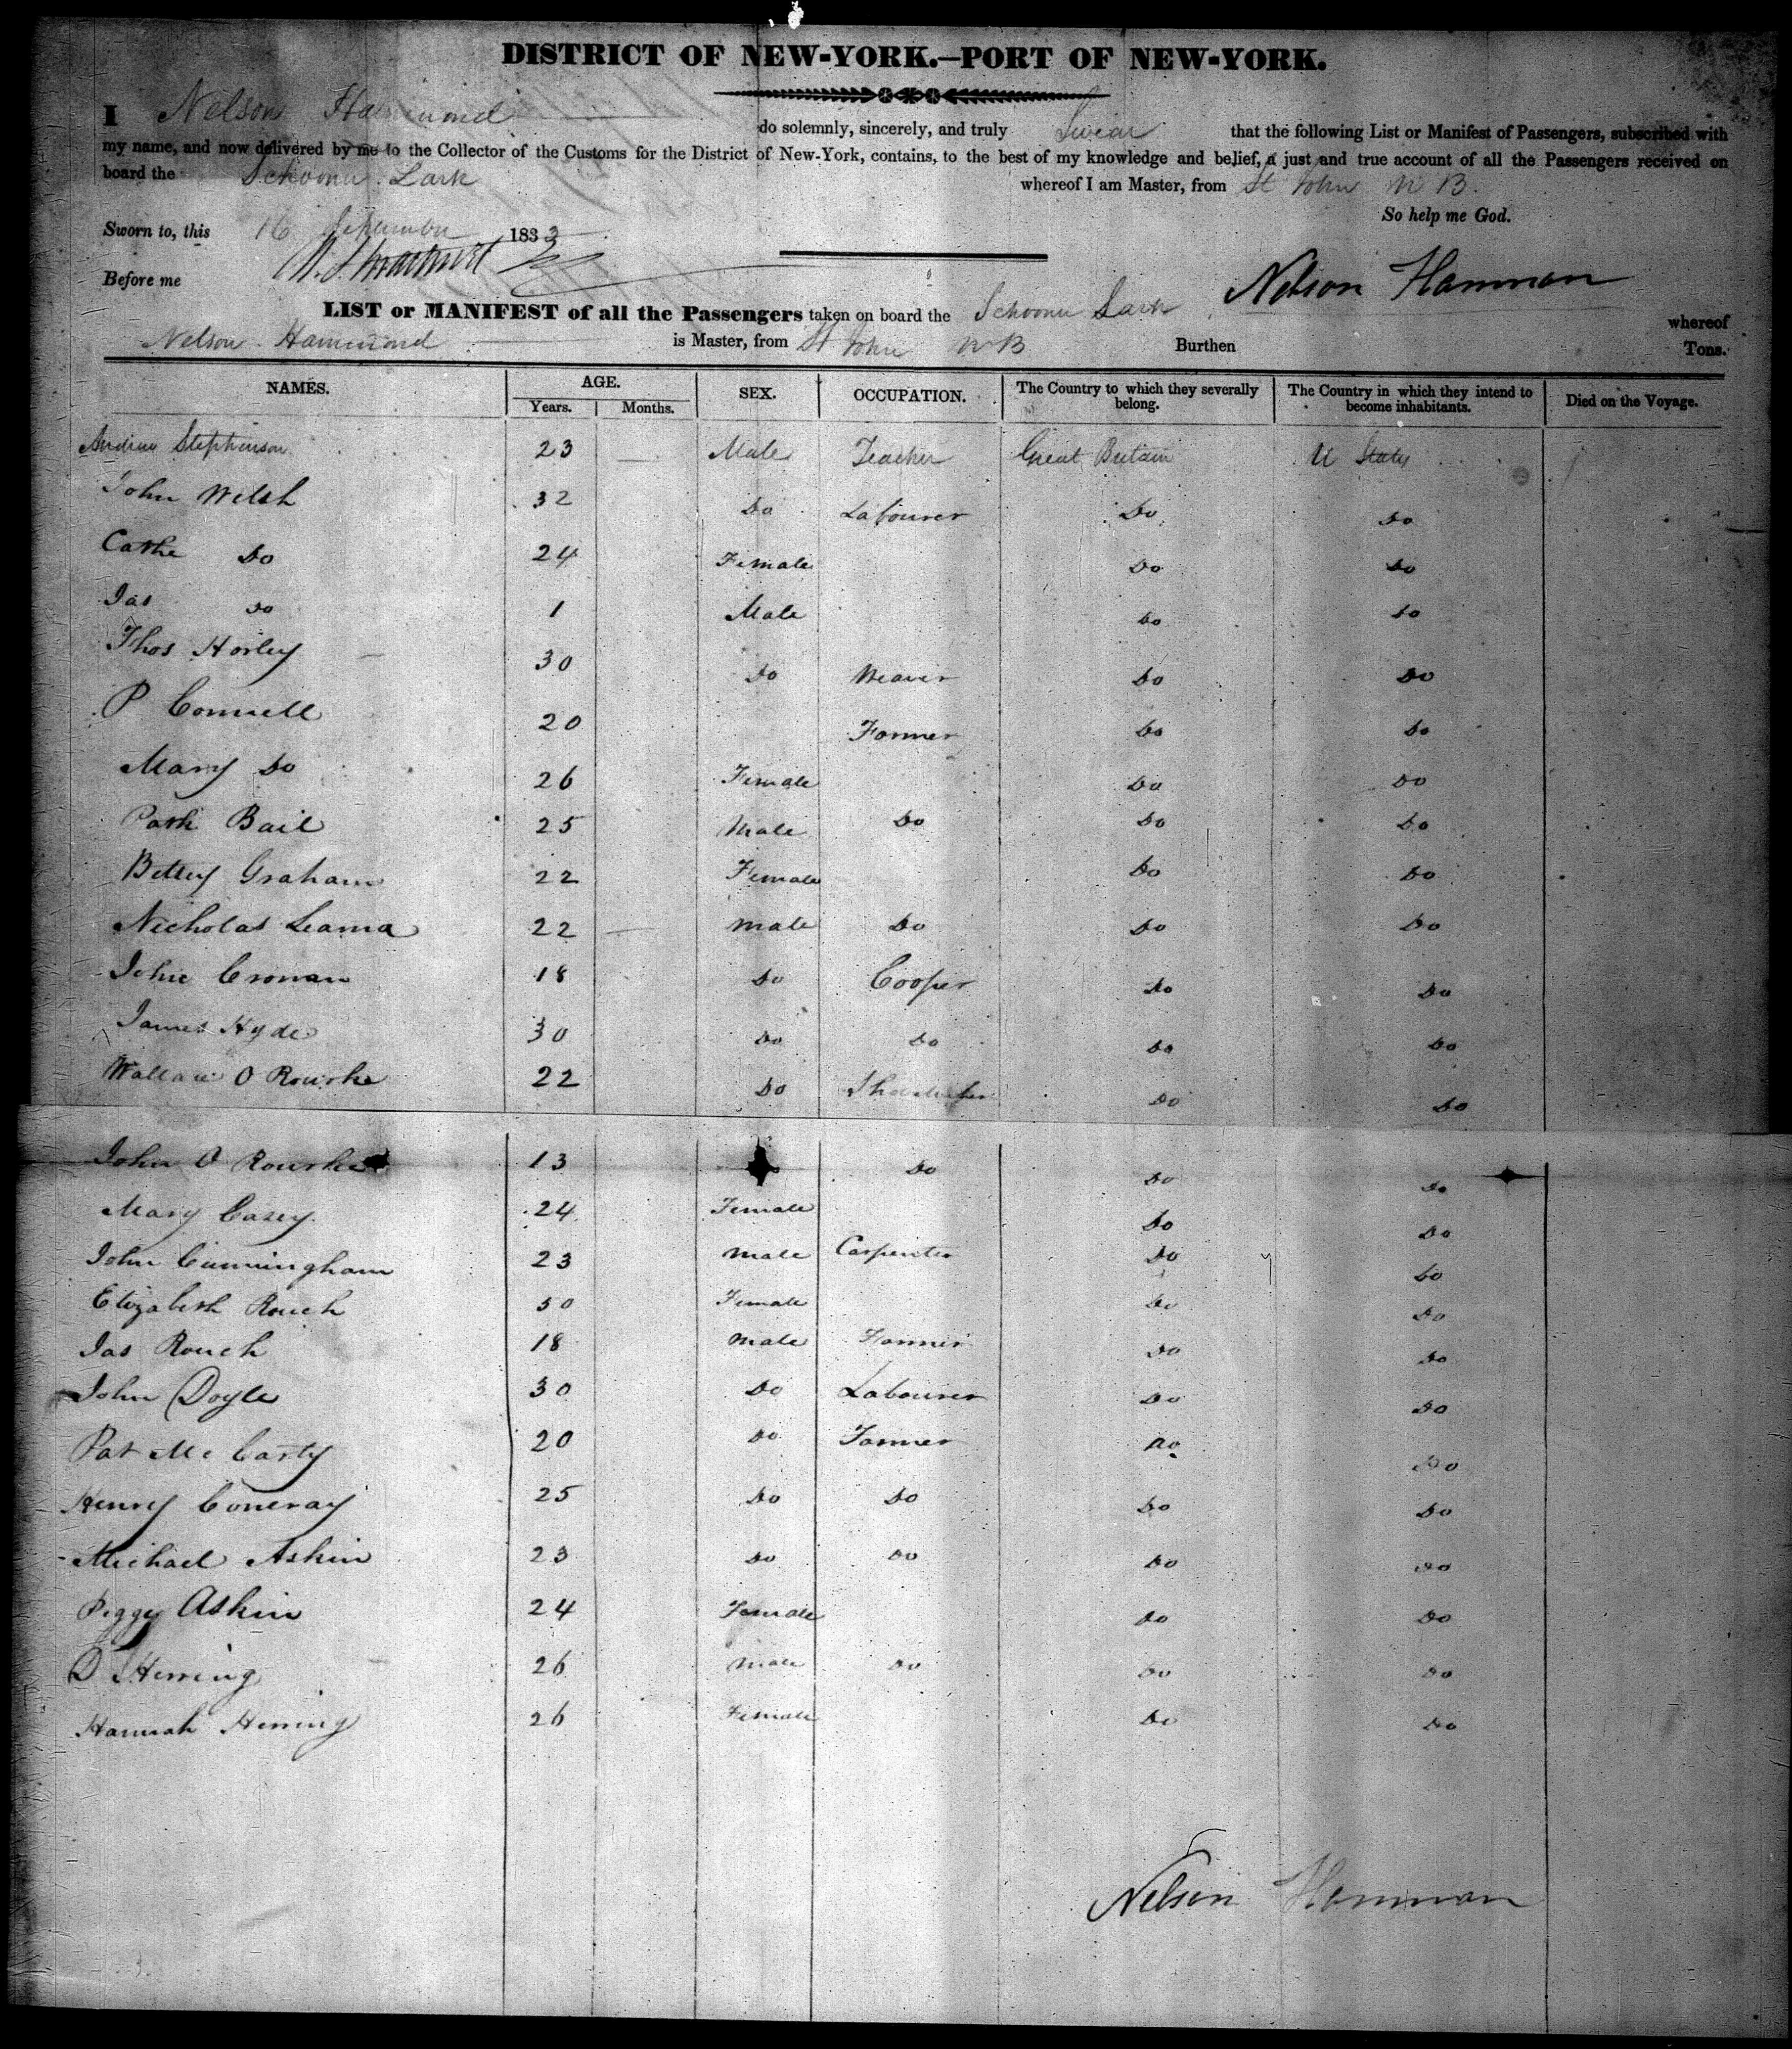 DISTRICT OF NEW-YORK.—PORT OF NEW-YORK.
I Nelson Hammond do solemnly, sincerely, and truly Swear that the following List or Manifest of Passengers, subscribed with
my name, and now delivered by me to the Collector of the Customs for the District of New-York, contains, to the best of my knowledge and belief, a just and true account of all the Passengers received on
board the Schooner Lark whereof I am Master, from St John N B.
So help me God.
Sworn to, this 16 September 1833
Before me
Nelson Hamman
LIST or MANIFEST of all the Passengers taken on board the Schooner Lark whereof
Nelson Hammond is Master, from St John N B Burthen Tons.
NAMES. AGE. SEX. OCCUPATION. The Country to which they severally belong. The Country in which they intend to become inhabitants. Died on the Voyage.
Years. Months.
Andrew Stephenson 23 Male Teacher Great Britain U States
John Welsh 32 Do Labourer Do Do
Cathe Do 24 Female Do Do
Jas Do 1 Male Do Do
Thos Horley 30 Do Weaver Do Do
P Connell 20 Farmer Do Do
Mary Do 26 Female Do Do
Patk Bail 25 Male Do Do Do
Betsey Graham 22 Female Do Do
Nicholas Leama 22 Male Do Do Do
John Cronan 18 Do Cooper Do Do
James Hyde 30 Do Do Do Do
Wallace O Rourke 22 Do Shoemaker Do Do
John O Rourke 13 Do Do Do
Mary Casey 24 Female Do Do
John Cunningham 23 Male Carpenter Do Do
Elizabeth Rouch 50 Female Do Do
Jas Rouch 18 Male Farmer Do Do
John Doyle 30 Do Labourer Do Do
Pat Mc Carty 20 Do Farmer Do Do
Henry Coneray 25 Do Do Do Do
Michael Askin 23 Do Do Do Do
Peggy Askin 24 Female Do Do
D Herring 26 Male Do Do Do
Hannah Herring 26 Female Do Do
Nelson Hamman